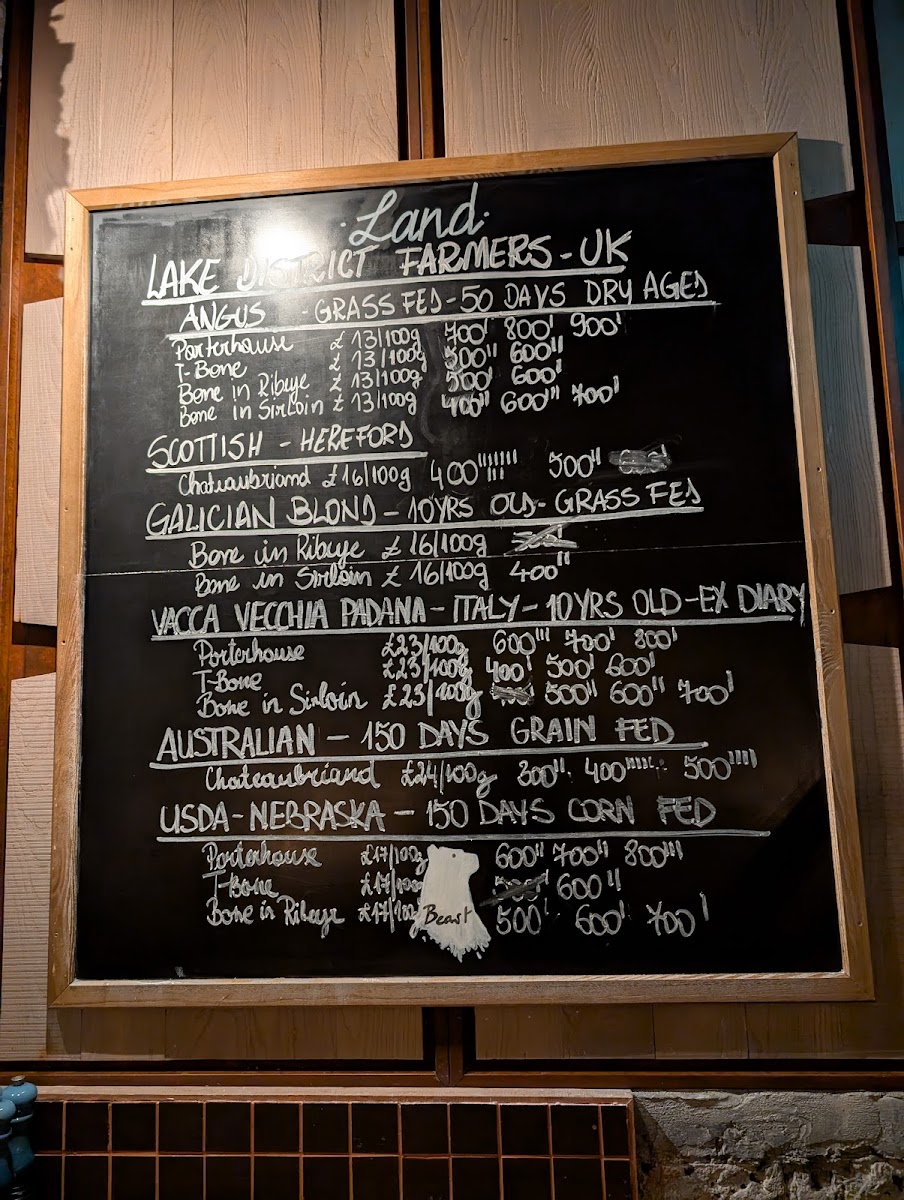 Land
LAKE DISTRICT FARMERS - UK
ANGUS - GRASS FED - 50 DAYS DRY AGED
Porterhouse £ 13/100g 700' 800' 900'
T-Bone £ 13/100g 500'' 600''
Bone in Ribeye £ 13/100g 500' 600'
Bone in Sirloin £ 13/100g 400'' 600'' 700'
SCOTTISH - HEREFORD
Chateaubriand £16/100g 400 500''
GALICIAN BLOND - 10YRS OLD - GRASS FED
Bone in Ribeye £ 16/100g
Bone in Sirloin £ 16/100g 400''
VACCA VECCHIA PADANA - ITALY - 10YRS OLD - EX DIARY
Porterhouse £23/100g 600''' 700' 800'
T-Bone £23/100g 400' 500' 600'
Bone in Sirloin £23/100g 500'' 600'' 700'
AUSTRALIAN - 150 DAYS GRAIN FED
Chateaubriand £24/100g 300'' 400 500''''
USDA - NEBRASKA - 150 DAYS CORN FED
Porterhouse £17/100g 600'' 700'' 800'''
T-Bone £17/100g 500' 600''
Bone in Ribeye £17/100g 500' 600' 700'
Beast